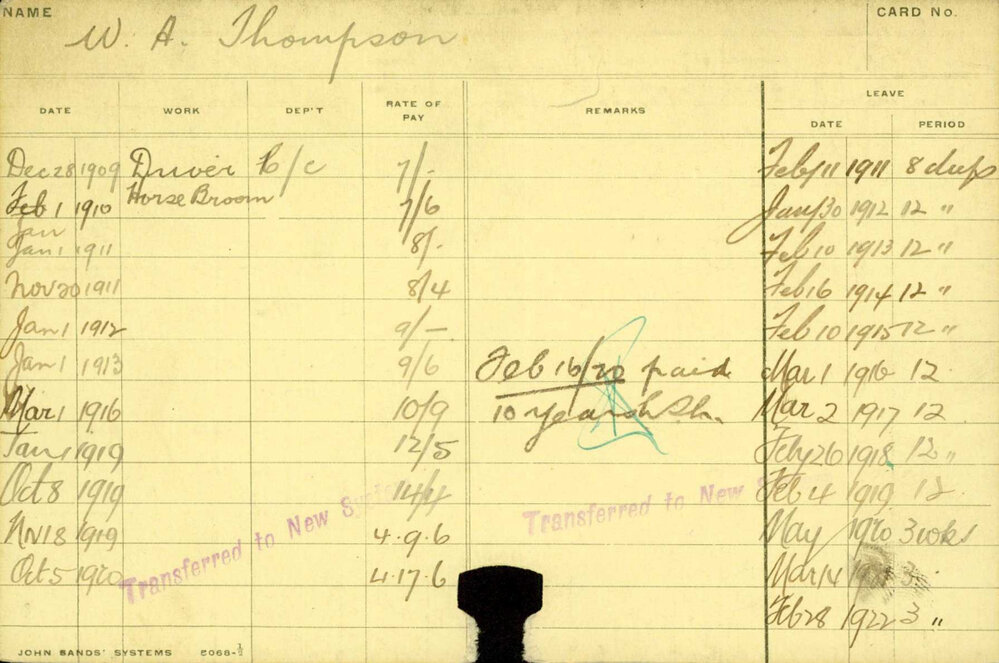 NAME
W. A. Thompson
CARD No.
DATE WORK DEP'T RATE OF PAY REMARKS LEAVE
DATE PERIOD
Dec 28 1909 Driver C/C 7/- Feby 11 1911 8 days
Feb 1 1910 Horse Broom 7/6 Jany 30 1912 12 "
Jan
Jan 1 1911 8/- Feb 10 1913 12 "
Nov 20 1911 8/4 Feb 16 1914 12 "
Jan 1 1912 9/- Feb 10 1915 12 "
Jan 1 1913 9/6 Feb 16/20 paid Mar 1 1916 12
Mar 1 1916 10/9 10 years Mar 2 1917 12
Jan 1 1919 12/5 Feby 26 1918 12 "
Oct 8 1919 14/4 Feb 4 1919 12
Transferred to New System
Transferred to New
Nov 18 1919 4.9.6 May 1920 3 wks
Oct 5 1920 4.17.6 Mar 14 3
Feb 28 1922 3 "
JOHN SANDS' SYSTEMS 5068-½